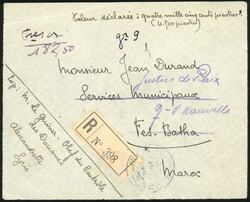 Valeur déclarée : quatre mille cinq cents piastres
(4.500 piastres)
182,50
gr 9
Monsieur Jean Durand
Justice de Paix
Services Municipaux
Fes-Batha
Maroc
R
No 398
Exp: M. Le
Chef de
des Douanes
Alexandrette
Syrie